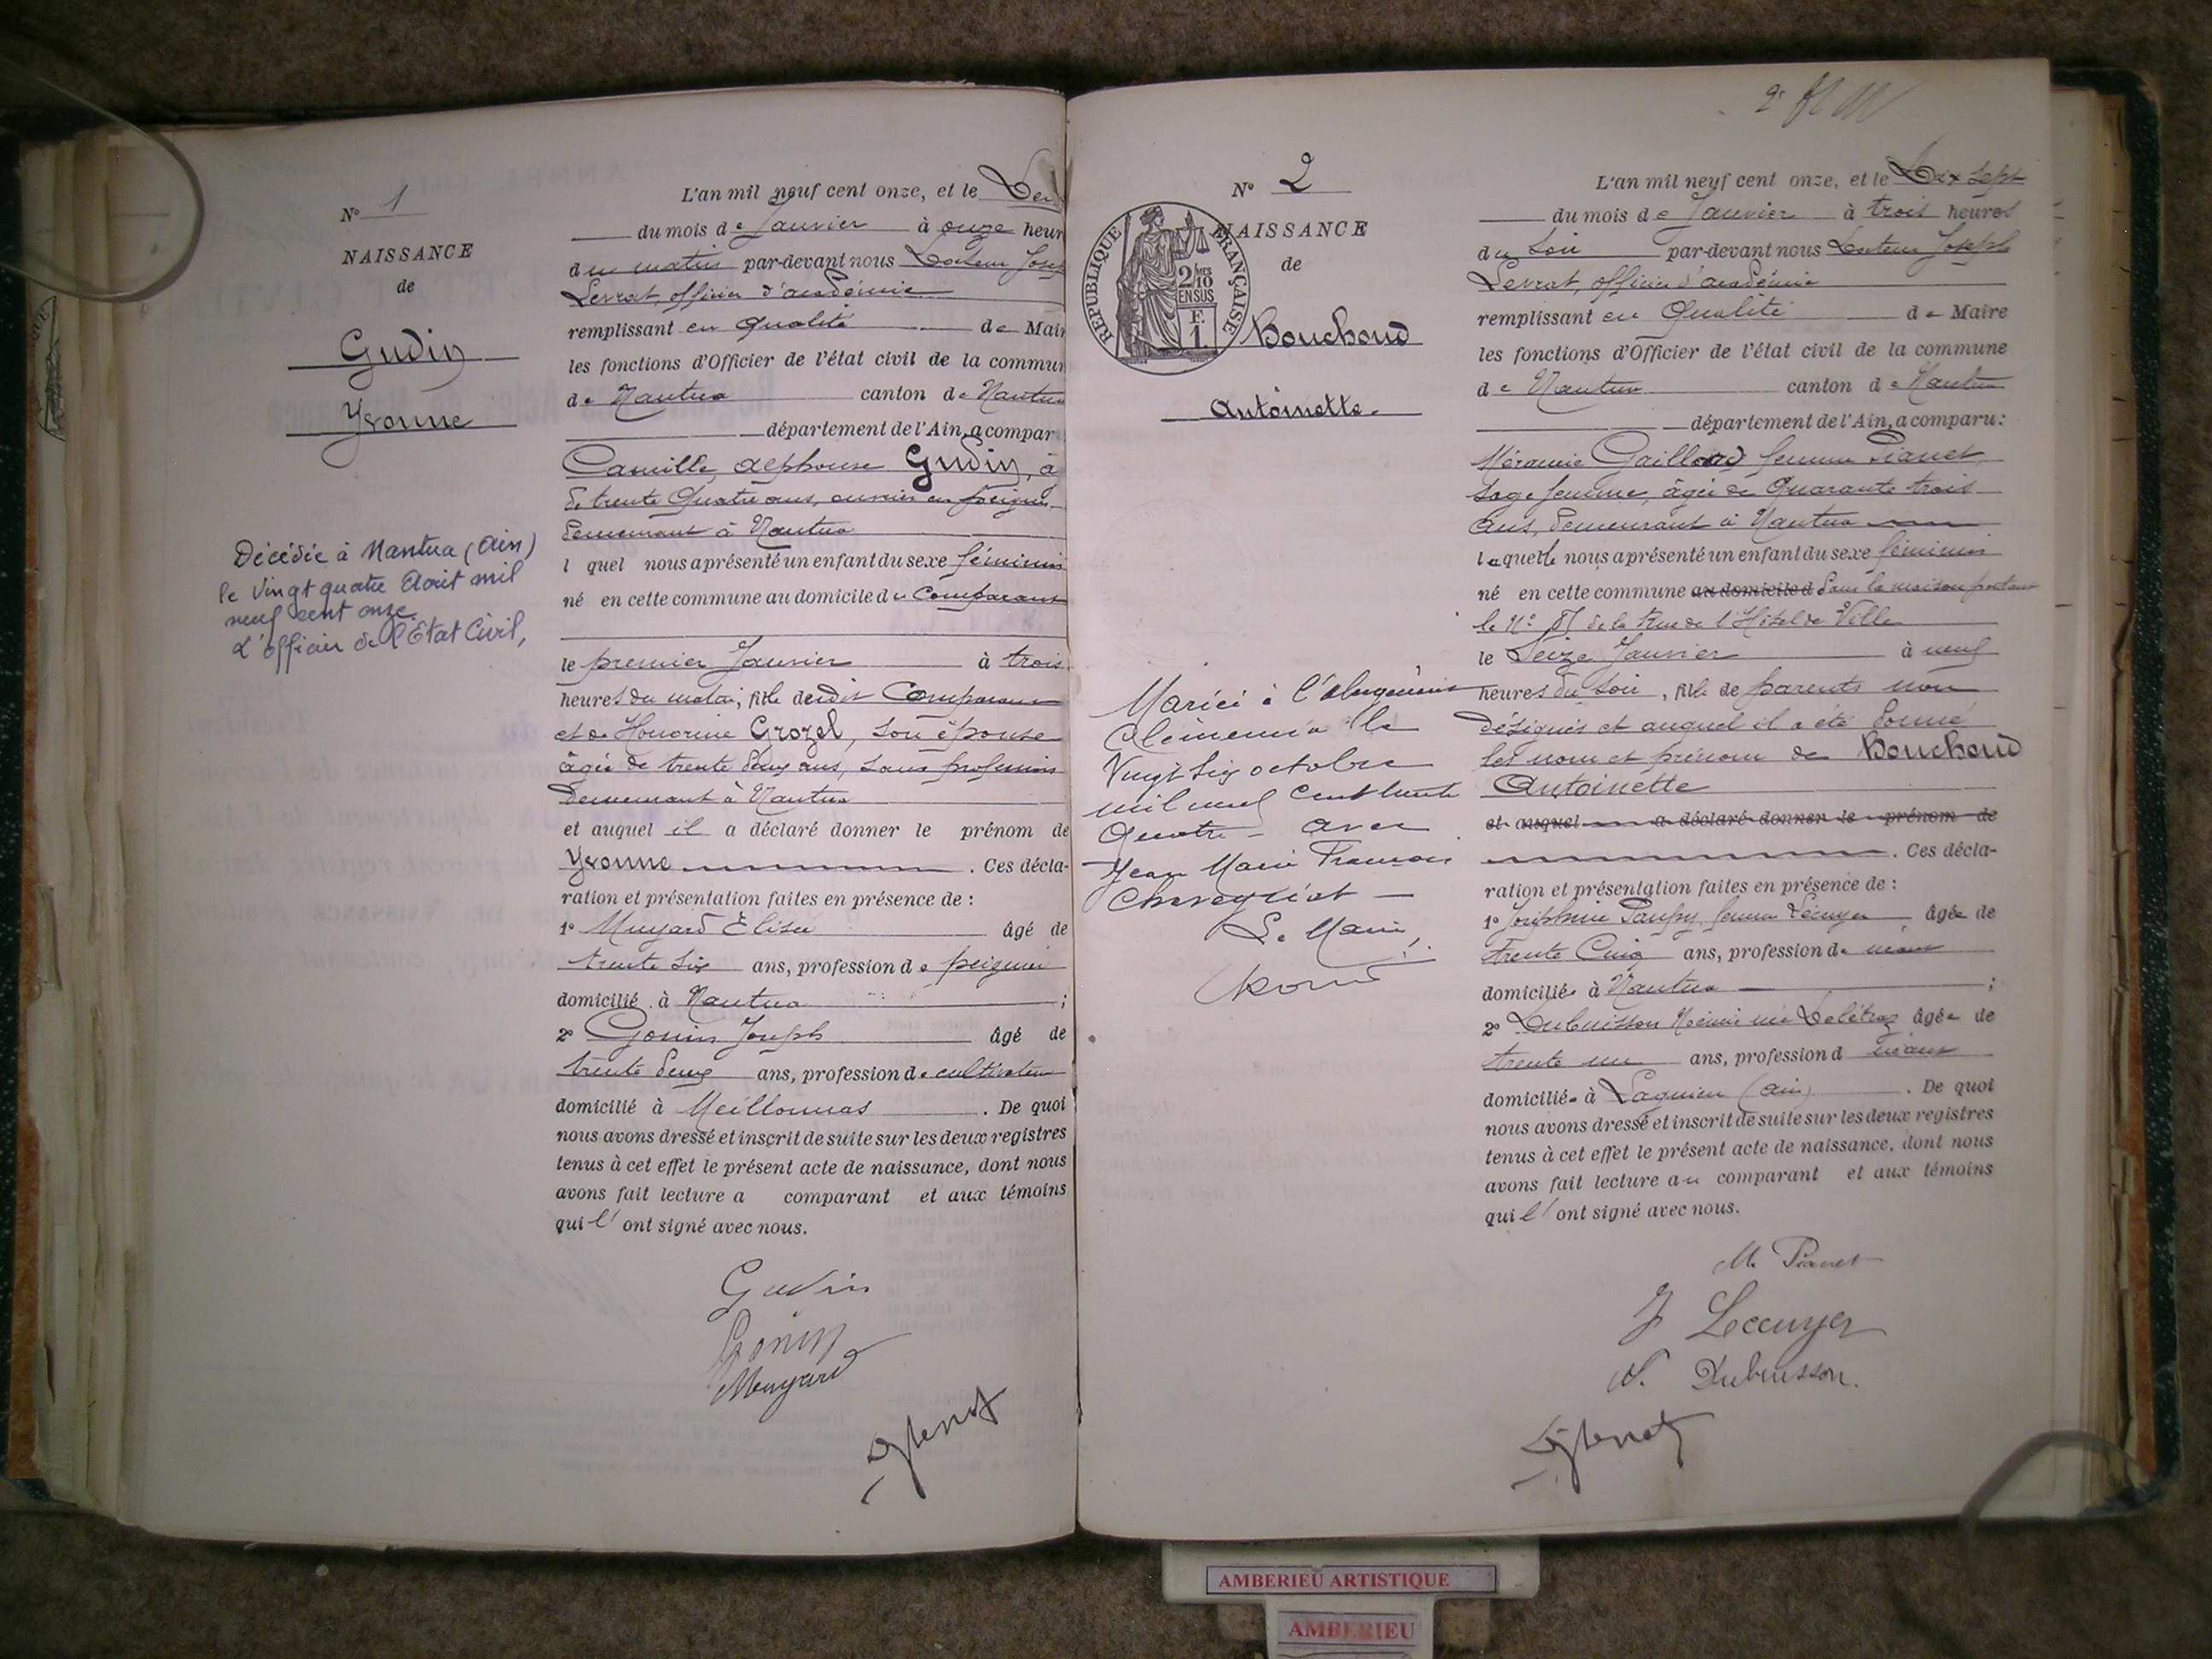 N° 1
NAISSANCE
de
Gudin
Yvonne
Décédée à Nantua (Ain)
le Vingt quatre Août mil
neuf cent onze.
L'officier de l'Etat Civil,
L'an mil neuf cent onze, et le
du mois de Janvier à onze heur
du matin par-devant nous Docteur Josep
Levrat, officier d'académie
remplissant en qualité de Mair
les fonctions d'Officier de l'état civil de la commun
de Nantua canton de Nantua
département de l'Ain, a compar
Camille Alphonse Gudin, â
de trente quatre ans, ouvrier en peignes
demeurant à Nantua
l quel nous a présenté un enfant du sexe féminin
né en cette commune au domicile du Comparant
le premier Janvier à trois
heures du matin, fille dudit Comparant
et de Honorine Grozel, son épouse
âgée de trente deux ans, sans profession
demeurant à Nantua
et auquel il a déclaré donner le prénom de
Yvonne . Ces décla-
ration et présentation faites en présence de :
1° Muyard Elisée âgé de
trente six ans, profession de
domicilié à Nantua ;
2° Gonin Joseph âgé de
trente deux ans, profession de cultivateur
domicilié à Meillonnas . De quoi
nous avons dressé et inscrit de suite sur les deux registres
tenus à cet effet le présent acte de naissance, dont nous
avons fait lecture a comparant et aux témoins
qui l' ont signé avec nous.
Gudin
Gonin
Muyard
2e
N° 2
NAISSANCE
de
RÉPUBLIQUE FRANÇAISE
2/10 MES
EN SUS
F.
1
Bouchoud
Antoinette.
Mariée à
le
Vingt six octobre
mil neuf cent trente
quatre - avec
Jean Marie François
Le Maire,
L'an mil neuf cent onze, et le Dix sept
du mois de Janvier à trois heures
du Soir par-devant nous Docteur Joseph
Levrat, officier d'académie
remplissant en Qualité de Maire
les fonctions d'Officier de l'état civil de la commune
de Nantua canton de Nantua
département de l'Ain, a comparu :
Gaillard femme Pianet
sage femme, âgée de Quarante trois
ans, demeurant à Nantua
laquelle nous a présenté un enfant du sexe féminin
né en cette commune au domicile d dans la maison portant
le N° de la Rue de l'Hôtel de Ville
le Seize Janvier à neuf
heures du soir, fille de parents non
désignés et auquel il a été donné
les nom et prénom de Bouchoud
Antoinette
et auquel a déclaré donner le prénom de
. Ces décla-
ration et présentation faites en présence de :
1° Joséphine femme Lécuyer âgée de
trente Cinq ans, profession de
domiciliée à Nantua ;
2° Dubuisson Noémie née Delétraz âgée de
trente un ans, profession d
domiciliée à Lagnieu (Ain) . De quoi
nous avons dressé et inscrit de suite sur les deux registres
tenus à cet effet le présent acte de naissance, dont nous
avons fait lecture au comparant et aux témoins
qui l' ont signé avec nous.
M. Pianet
J Lecuyer
N. Dubuisson.
AMBERIEU ARTISTIQUE
AMBERIEU